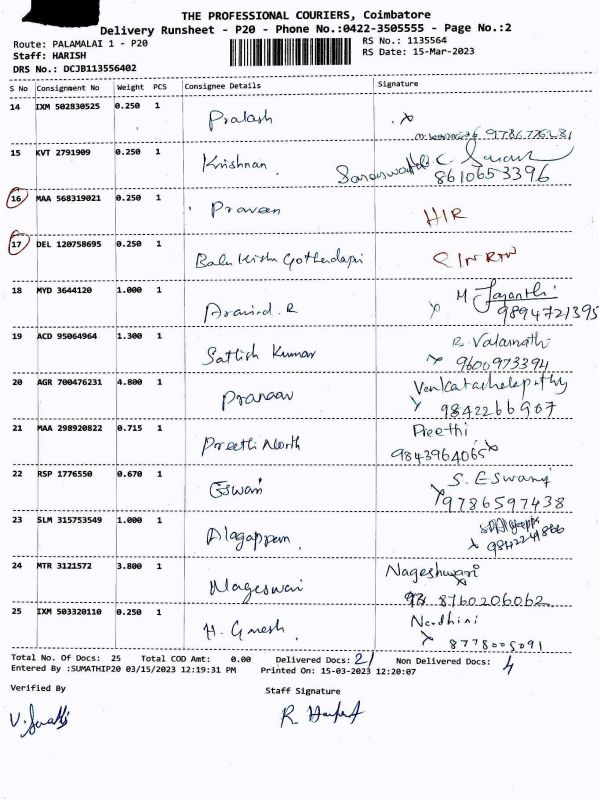 THE PROFESSIONAL COURIERS, Coimbatore
Delivery Runsheet - P20 - Phone No.:0422-3505555 - Page No.:2
Route: PALAMALAI 1 - P20
RS No.: 1135564
Staff: HARISH
RS Date: 15-Mar-2023
DRS No.: DCJB113556402
S No Consignment No Weight PCS Consignee Details Signature
14 IXM 502830525 0.250 1 Prakash x
15 KVT 2791909 0.250 1 Krishnan
8610653396
16 MAA 568319021 0.250 1 Praveen HIR
17 DEL 120758695 0.250 1
18 MYD 3644120 1.000 1 Aravind. R M Jayanthi
9894721395
19 ACD 95064964 1.300 1 Sathish Kumar R. Valarmathi
9600973394
20 AGR 700476231 4.800 1 Pranaav Venkatachalapathy
9842266907
21 MAA 298920822 0.715 1 Preethi North Preethi
9843964065 x
22 RSP 1776550 0.670 1 Eswari S. Eswari
x 9786597438
23 SLM 315753549 1.000 1 Alagappan
24 MTR 3121572 3.800 1 Mageswari Nageshwari
8760206062
25 IXM 503320110 0.250 1 H. Ganesh. Nandhini
8778005091
Total No. Of Docs: 25 Total COD Amt: 0.00 Delivered Docs: 21 Non Delivered Docs: 4
Entered By :SUMATHIP20 03/15/2023 12:19:31 PM Printed On: 15-03-2023 12:20:07
Verified By Staff Signature